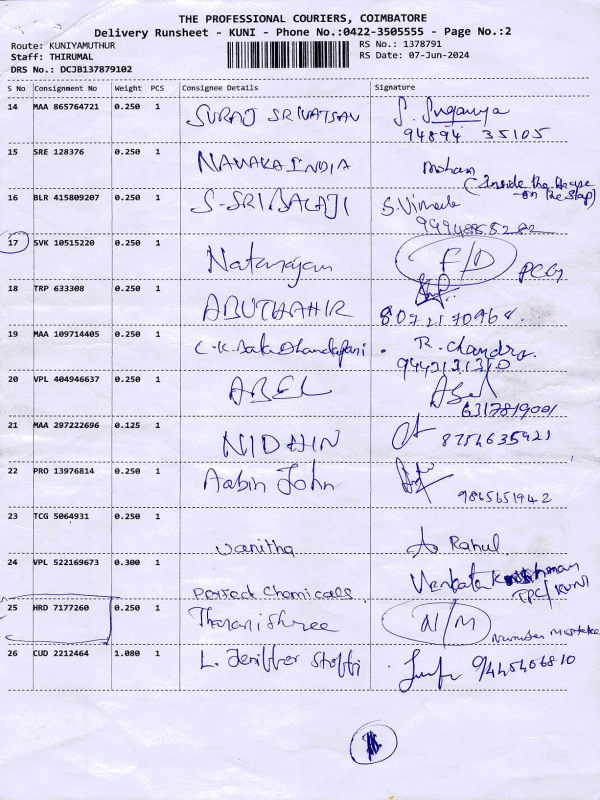 THE PROFESSIONAL COURIERS, COIMBATORE
Delivery Runsheet - KUNI - Phone No.:0422-3505555 - Page No.:2
Route: KUNIYAMUTHUR RS No.: 1378791
Staff: THIRUMAL RS Date: 07-Jun-2024
DRS No.: DCJB137879102
S No Consignment No Weight PCS Consignee Details Signature
14 MAA 865764721 0.250 1 SURAJ SRIVATSAV S. Suganya
94894 35105
15 SRE 128376 0.250 1 NAMAKA INDIA Moham
(Inside the House
on the slap)
16 BLR 415809207 0.250 1 S-SRI BALAJI S. Vimala
17 SVK 10515220 0.250 1 Natarajan F/D
18 TRP 633308 0.250 1 ABUTHAHIR
8072170968.
19 MAA 109714405 0.250 1 C.K. Bala Dhandapani R. Chandra.
9442131310
20 VPL 404946637 0.250 1 ABEL Abel
6317819001
21 MAA 297222696 0.125 1 NIDHIN 8754635921
22 PRO 13976814 0.250 1 Aabin John
9865651942
23 TCG 5064931 0.250 1 Vanitha Rahul.
24 VPL 522169673 0.300 1 Perfect Chemicals Venkata
TPC/KUNI
25 HRD 7177260 0.250 1 Tharanishree N/M
Number Mistake
26 CUD 2212464 1.080 1 L. Jeniffer Steffi 9445406810